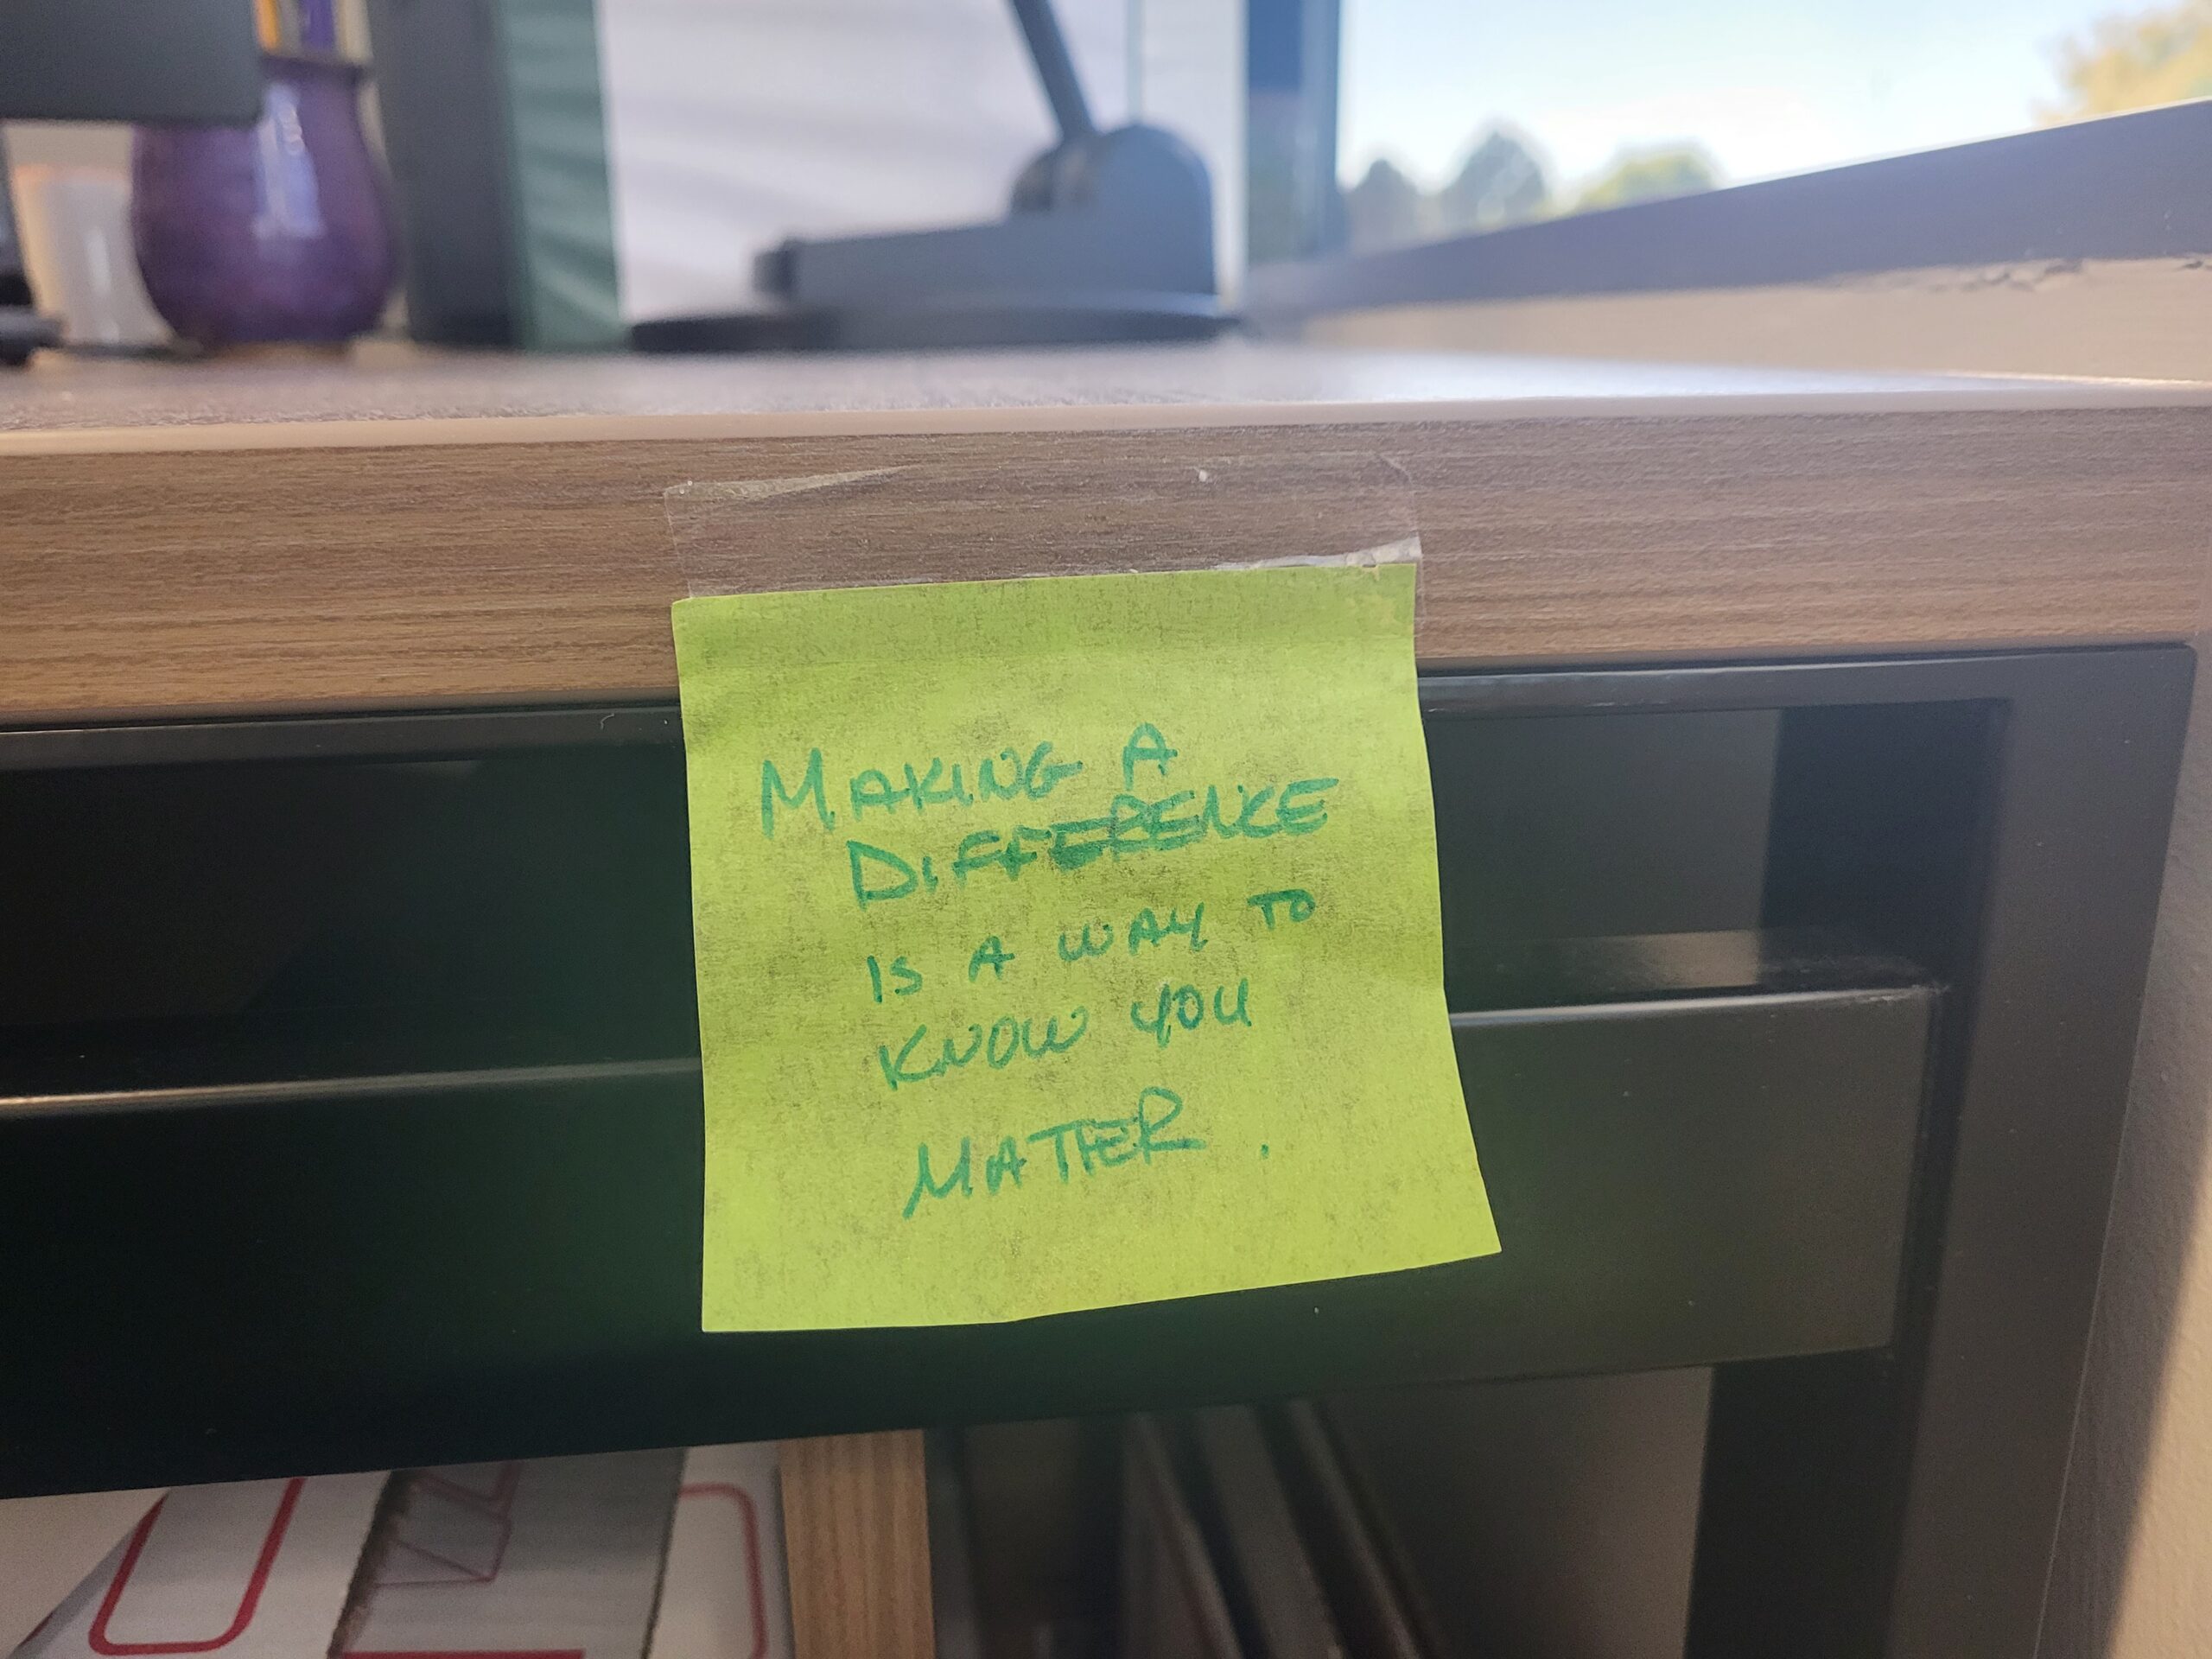 MAKING A
DIFFERENCE
IS A WAY TO
KNOW YOU
MATTER.